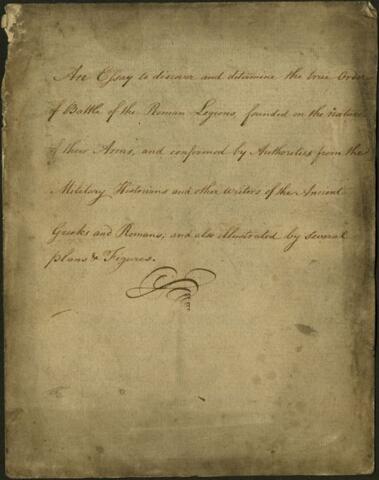 An Essay to discover and determine the true Order
of Battle of the Roman Legions, founded on the nature
of their Arms, and confirmed by Authorities from the
Military Historians and other writers of the Ancient
Greeks and Romans; and also illustrated by several
plans & Figures.